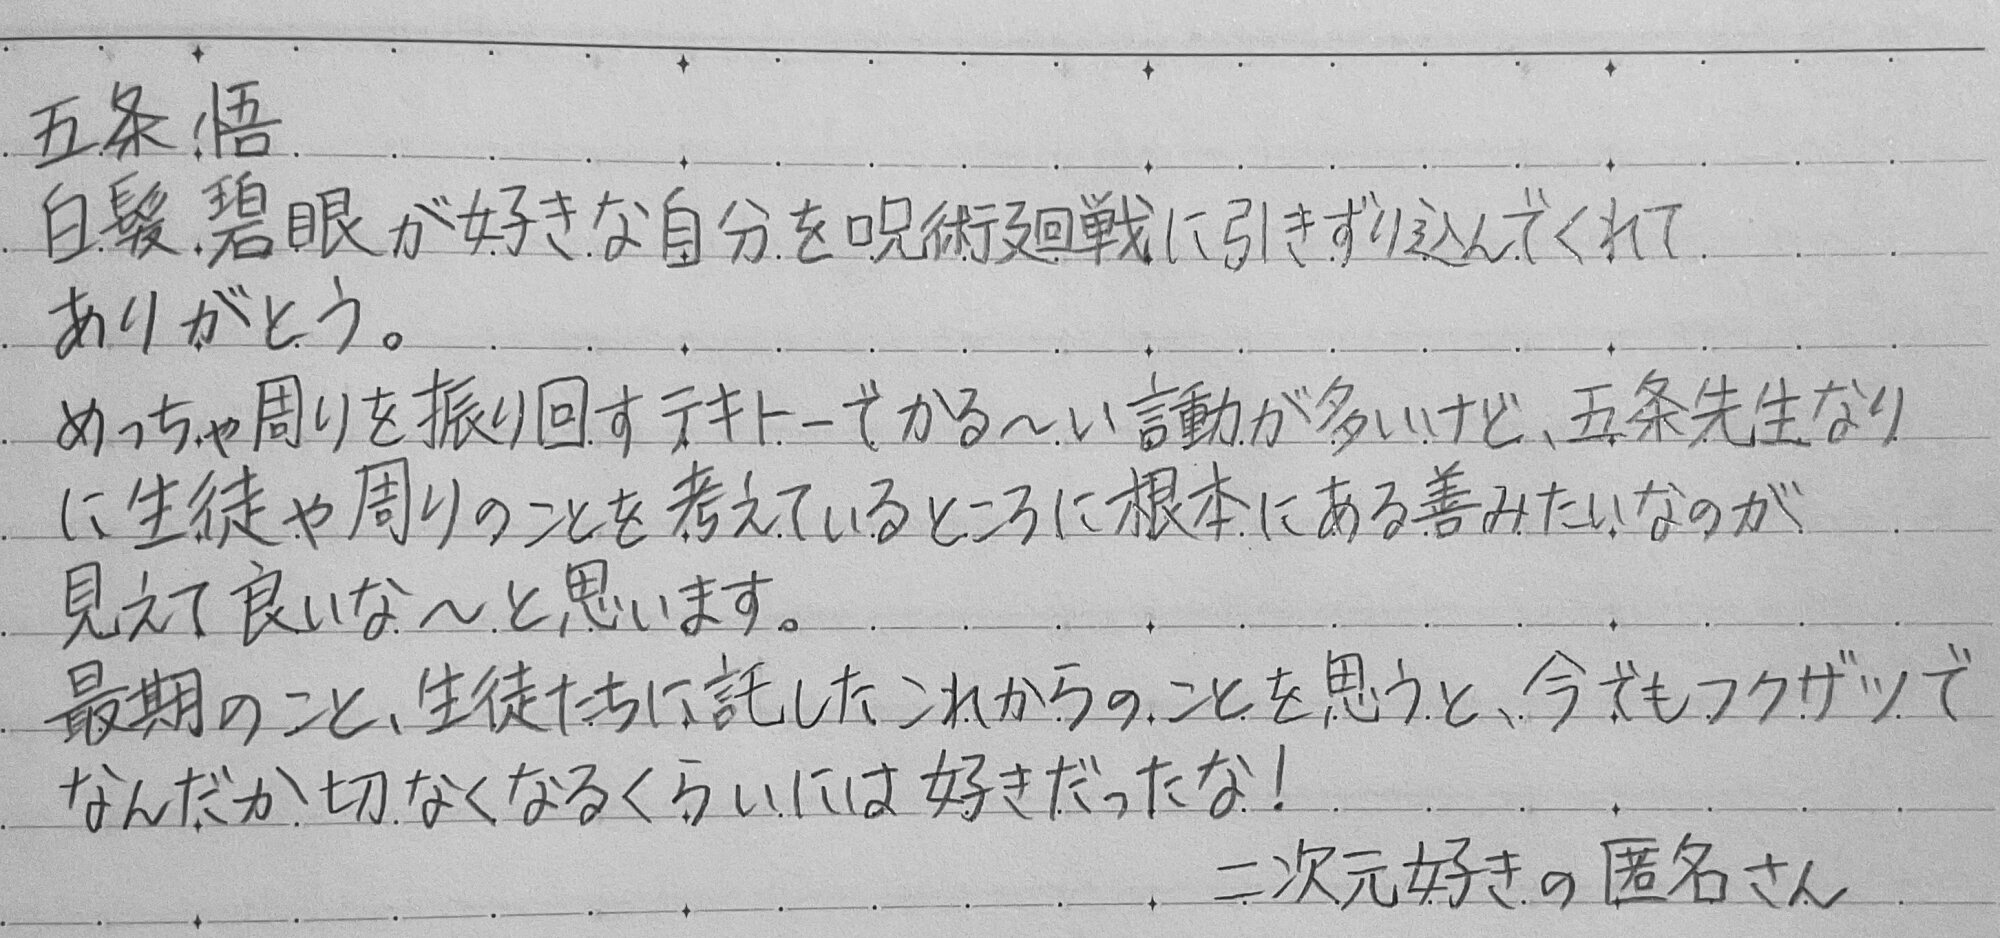 五条 悟
白髪碧眼が好きな自分を呪術廻戦に引きずり込んでくれて
ありがとう。
めっちゃ周りを振り回すテキトーでかる〜い言動が多いけど、五条先生なり
に生徒や周りのことを考えているところに根本にある善みたいなのが
見えて良いな〜と思います。
最期のこと、生徒たちに託したこれからのことを思うと、今でもフクザツで
なんだか切なくなるくらいには好きだったな!
二次元好きの匿名さん